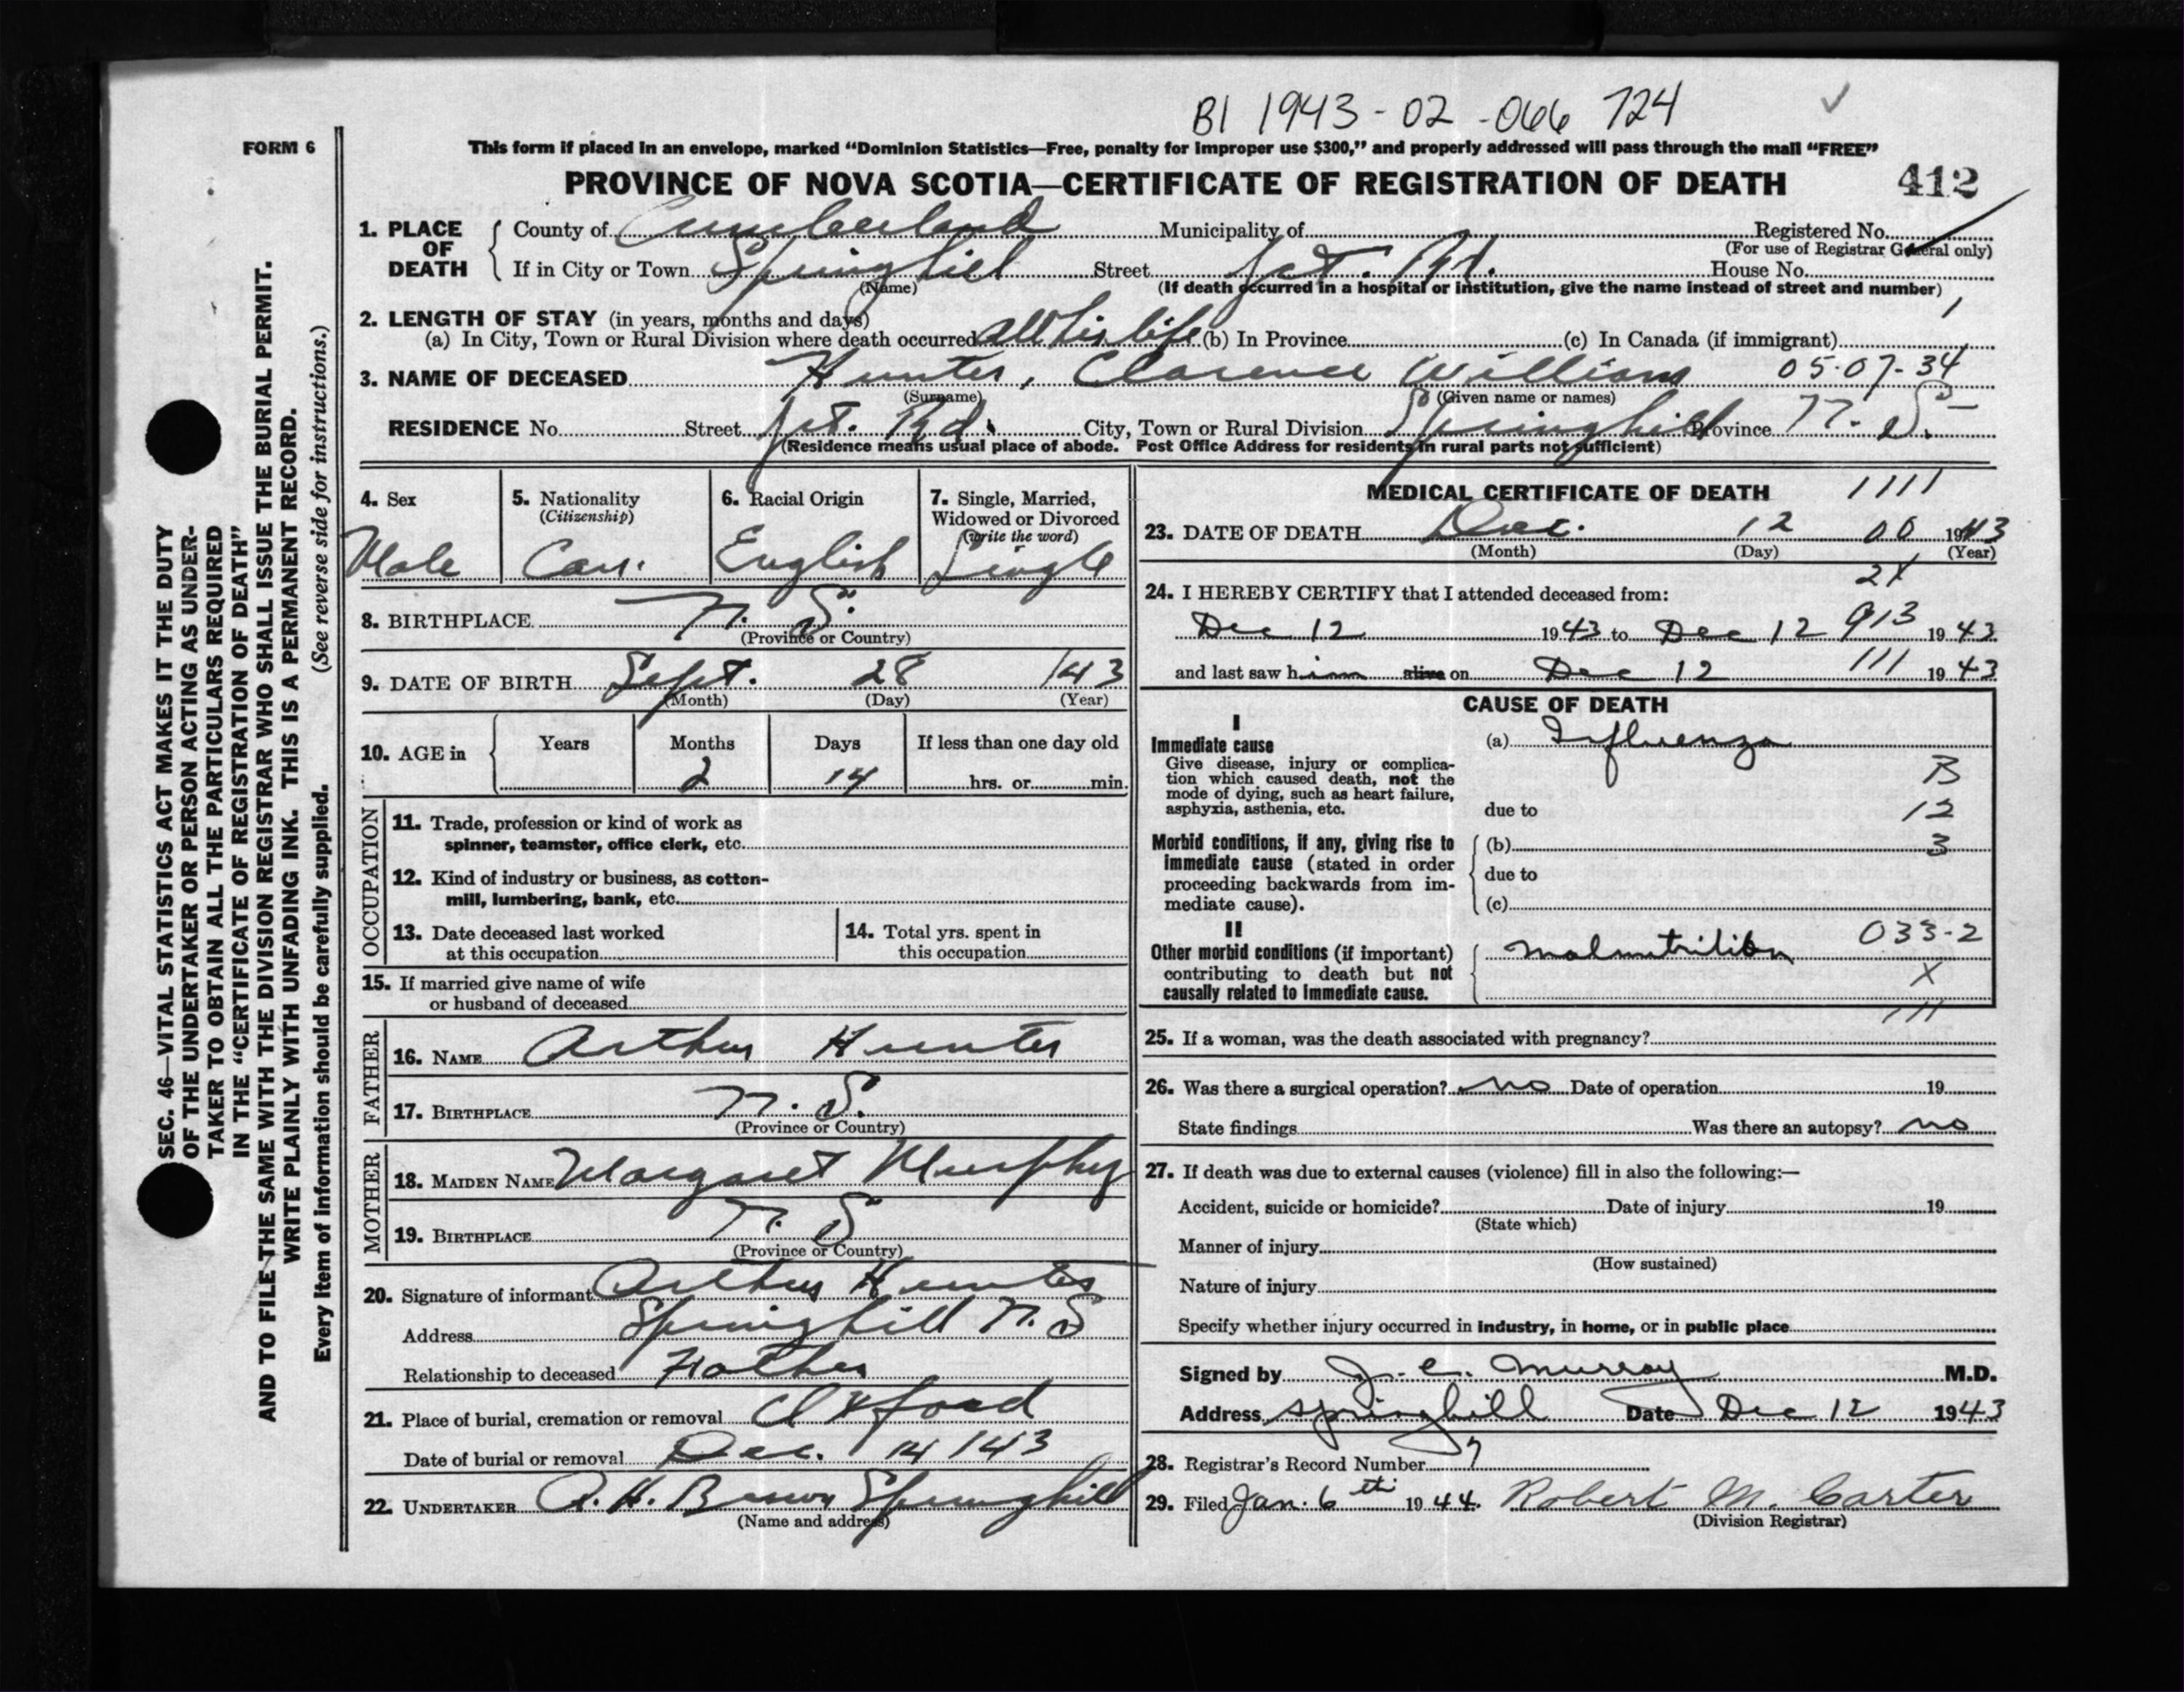 BI 1943-02-066724
FORM 6
This form if placed in an envelope, marked "Dominion Statistics—Free, penalty for improper use $300," and properly addressed will pass through the mail "FREE"
PROVINCE OF NOVA SCOTIA—CERTIFICATE OF REGISTRATION OF DEATH 412
1. PLACE OF DEATH County of Cumberland Municipality of Registered No.
(For use of Registrar General only)
If in City or Town Springhill Street Jct. Rd. House No.
(Name) (If death occurred in a hospital or institution, give the name instead of street and number)
2. LENGTH OF STAY (in years, months and days) 1
(a) In City, Town or Rural Division where death occurred all his life (b) In Province (c) In Canada (if immigrant)
3. NAME OF DECEASED Hunter, Clarence William 05-07-34
(Surname) (Given name or names)
RESIDENCE No. Street Jct. Rd. City, Town or Rural Division Springhill Province N. S.
(Residence means usual place of abode. Post Office Address for residents in rural parts not sufficient)
4. Sex Male
5. Nationality (Citizenship) Can.
6. Racial Origin English
7. Single, Married, Widowed or Divorced (write the word) Single
8. BIRTHPLACE N. S.
(Province or Country)
9. DATE OF BIRTH Sept. 28 1943
(Month) (Day) (Year)
10. AGE in Years Months Days If less than one day old
2 14 hrs. or min.
OCCUPATION
11. Trade, profession or kind of work as
spinner, teamster, office clerk, etc.
12. Kind of industry or business, as cotton-
mill, lumbering, bank, etc.
13. Date deceased last worked
at this occupation
14. Total yrs. spent in
this occupation
15. If married give name of wife
or husband of deceased
FATHER
16. NAME Arthur Hunter
17. BIRTHPLACE N. S.
(Province or Country)
MOTHER
18. MAIDEN NAME Margaret Murphy
19. BIRTHPLACE N. S
(Province or Country)
20. Signature of informant Arthur Hunter
Address Springhill N. S
Relationship to deceased Father
21. Place of burial, cremation or removal Oxford
Date of burial or removal Dec. 14 143
22. UNDERTAKER A. H. Brown Springhill
(Name and address)
MEDICAL CERTIFICATE OF DEATH 1111
23. DATE OF DEATH Dec. 12 00 1943
(Month) (Day) (Year)
2X
24. I HEREBY CERTIFY that I attended deceased from:
Dec 12 1943 to Dec 12 913 1943
and last saw him alive on Dec 12 111 1943
CAUSE OF DEATH
I
Immediate cause (a) Influenza
Give disease, injury or complica-
tion which caused death, not the B
mode of dying, such as heart failure,
asphyxia, asthenia, etc. due to 12
Morbid conditions, if any, giving rise to (b) 3
immediate cause (stated in order
proceeding backwards from im- due to
mediate cause). (c)
II
Other morbid conditions (if important) Malnutrition 033-2
contributing to death but not X
causally related to immediate cause.
111
25. If a woman, was the death associated with pregnancy?
26. Was there a surgical operation? no Date of operation 19
State findings Was there an autopsy? no
27. If death was due to external causes (violence) fill in also the following:—
Accident, suicide or homicide? Date of injury 19
(State which)
Manner of injury
(How sustained)
Nature of injury
Specify whether injury occurred in industry, in home, or in public place
Signed by J. C. Murray M.D.
Address Springhill Date Dec 12 1943
28. Registrar's Record Number 7
29. Filed Jan. 6th 1944. Robert M. Carter
(Division Registrar)
SEC. 46—VITAL STATISTICS ACT MAKES IT THE DUTY
OF THE UNDERTAKER OR PERSON ACTING AS UNDER-
TAKER TO OBTAIN ALL THE PARTICULARS REQUIRED
IN THE "CERTIFICATE OF REGISTRATION OF DEATH"
AND TO FILE THE SAME WITH THE DIVISION REGISTRAR WHO SHALL ISSUE THE BURIAL PERMIT.
WRITE PLAINLY WITH UNFADING INK. THIS IS A PERMANENT RECORD.
Every item of information should be carefully supplied. (See reverse side for instructions.)